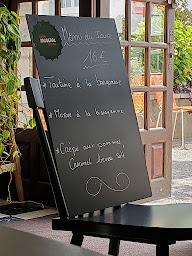 Menu du Jour
16 €
* Tartine à la bolognaise
* Mousse à la bolognaise
* Crêpe aux pommes
Caramel beurre salé